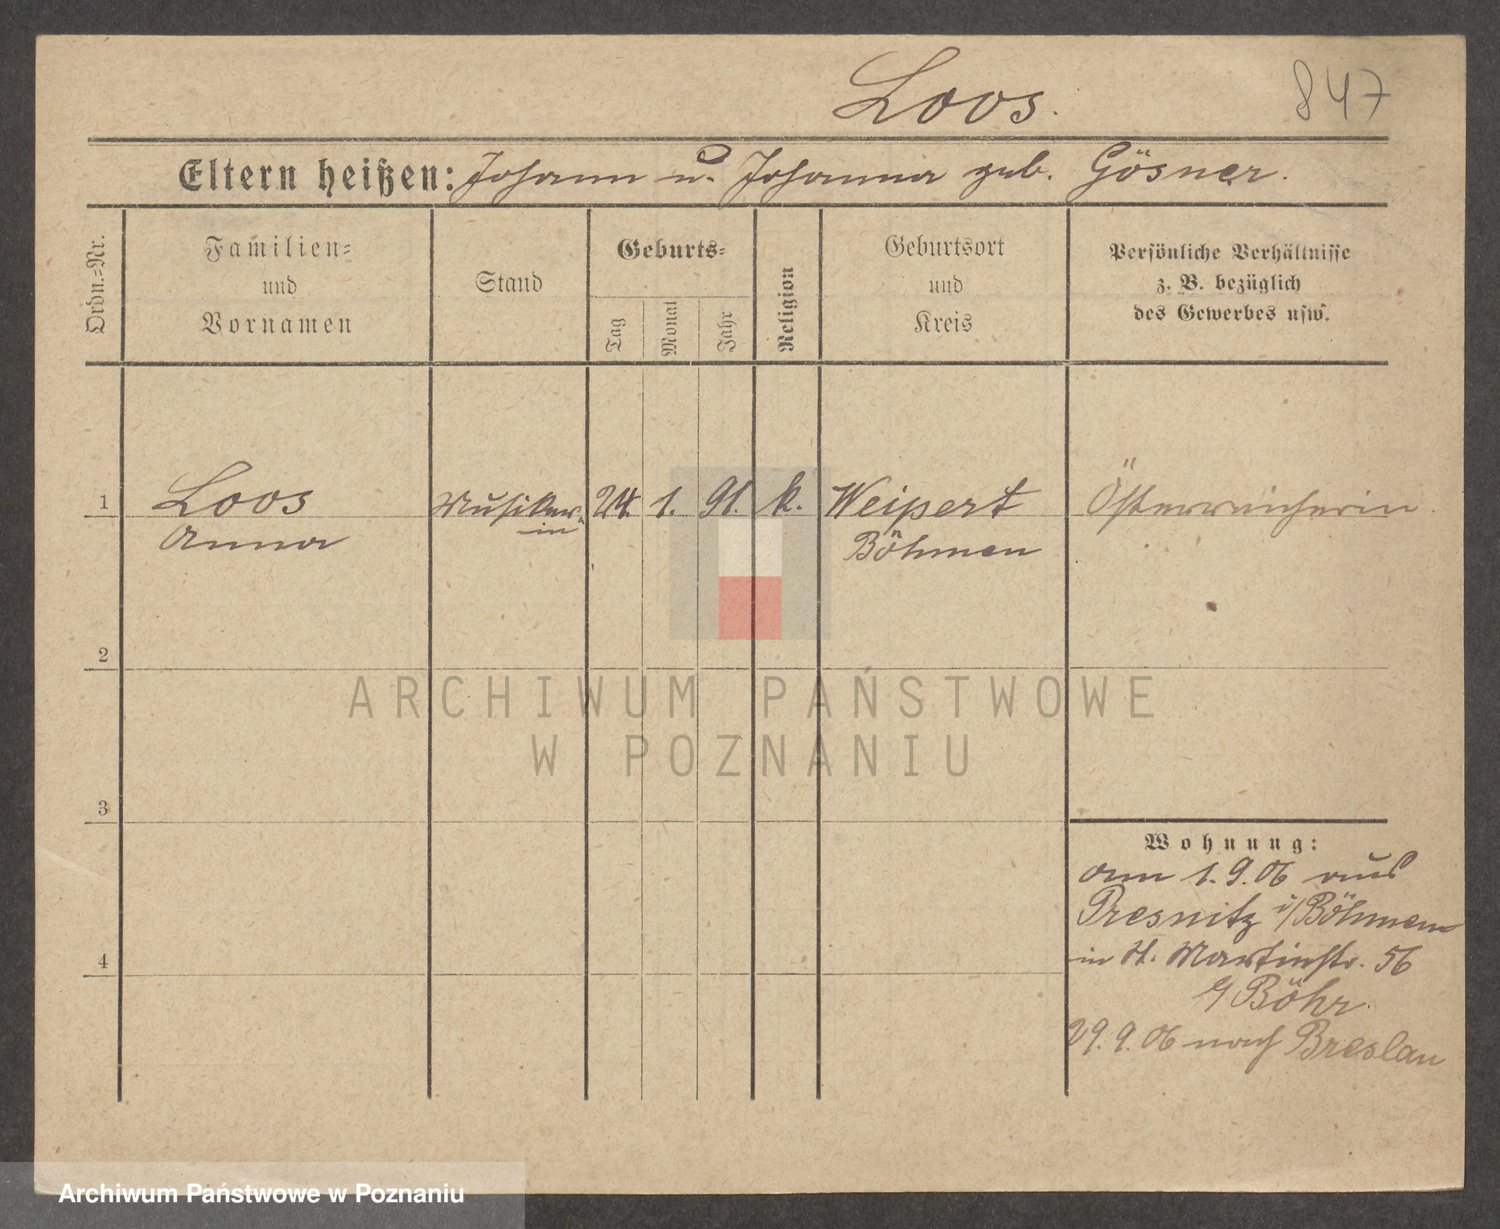 Loos.
847
Eltern heißen: Johann u. Johanna geb. Gösner.
Ordn.=Nr.
Familien=
und
Vornamen
Stand
Geburts=
Tag
Monat
Jahr
Religion
Geburtsort
und
Kreis
Persönliche Verhältnisse
z. B. bezüglich
des Gewerbes usw.
1
Loos
Anna
Musiker-
in
24. 1. 91. k.
Weipert
Böhmen
Österreicherin.
2
ARCHIWUM PAŃSTWOWE
W POZNANIU
3
Wohnung:
am 1.9.06 aus
Presnitz i/Böhmen
in St. Martinstr. 56
b/ Böhr.
29.9.06 nach Breslau
4
Archiwum Państwowe w Poznaniu